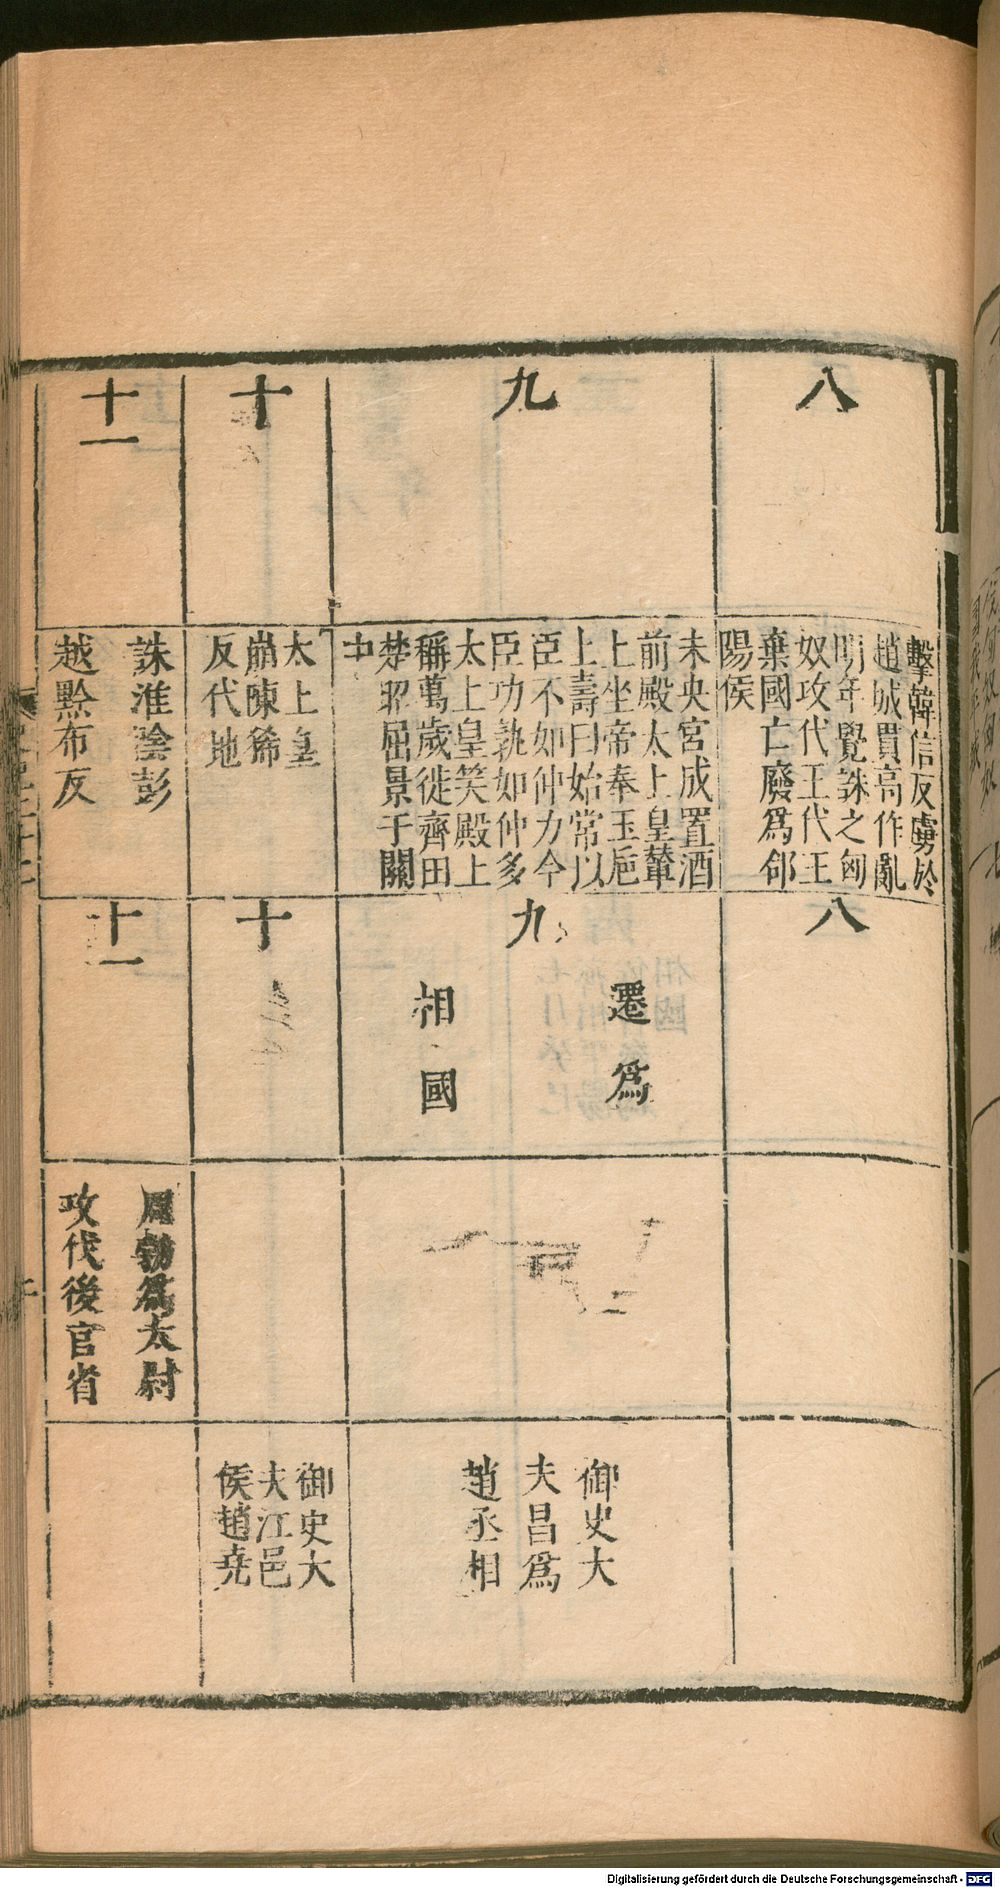 八
擊韓信反虜於
趙城貫高作亂
明年覺誅之匈
奴攻代王代王
棄國亡廢爲郃
陽侯
八
九
未央宮成置酒
前殿太上皇輦
上坐帝奉玉巵
上壽曰始常以
臣不如仲力今
臣功孰如仲多
太上皇笑殿上
稱萬歲徙齊田
楚昭屈景于關
中
九
遷爲
相國
御史大
夫昌爲
趙丞相
十
太上皇
崩陳豨
反代地
十
御史大
夫江邑
侯趙堯
十一
誅淮陰彭
越黥布反
十一
周勃爲太尉
攻伐後官省
Digitalisierung gefördert durch die Deutsche Forschungsgemeinschaft - DFG